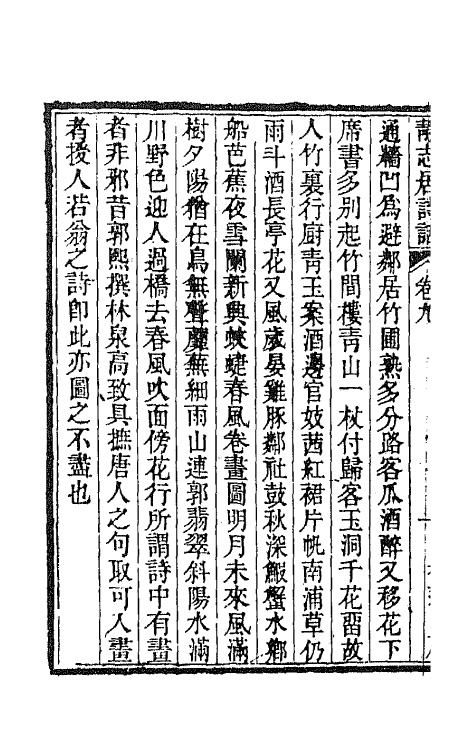 靜志居詩話 卷九
通牆凹爲避鄰居竹圃熟多分路客瓜酒醉又移花下
席書多别起竹間樓靑山一杖付歸客玉洞千花畱故
人竹裏行厨靑玉案酒邊官妓茜紅裙片帆南浦草仍
雨斗酒長亭花又風歲晏雞豚鄰社鼓秋深鰕蟹水鄕
船芭蕉夜雪闌新興蛺蝶春風卷畫圖明月未來風滿
樹夕陽猶在鳥無聲蘼蕪細雨山連郭翡翠斜陽水滿
川野色迎人過橋去春風吹面傍花行所謂詩中有畫
者非邪昔郭熙撰林泉高致具摭唐人之句取可人畫
者授人若翁之詩卽此亦圖之不盡也